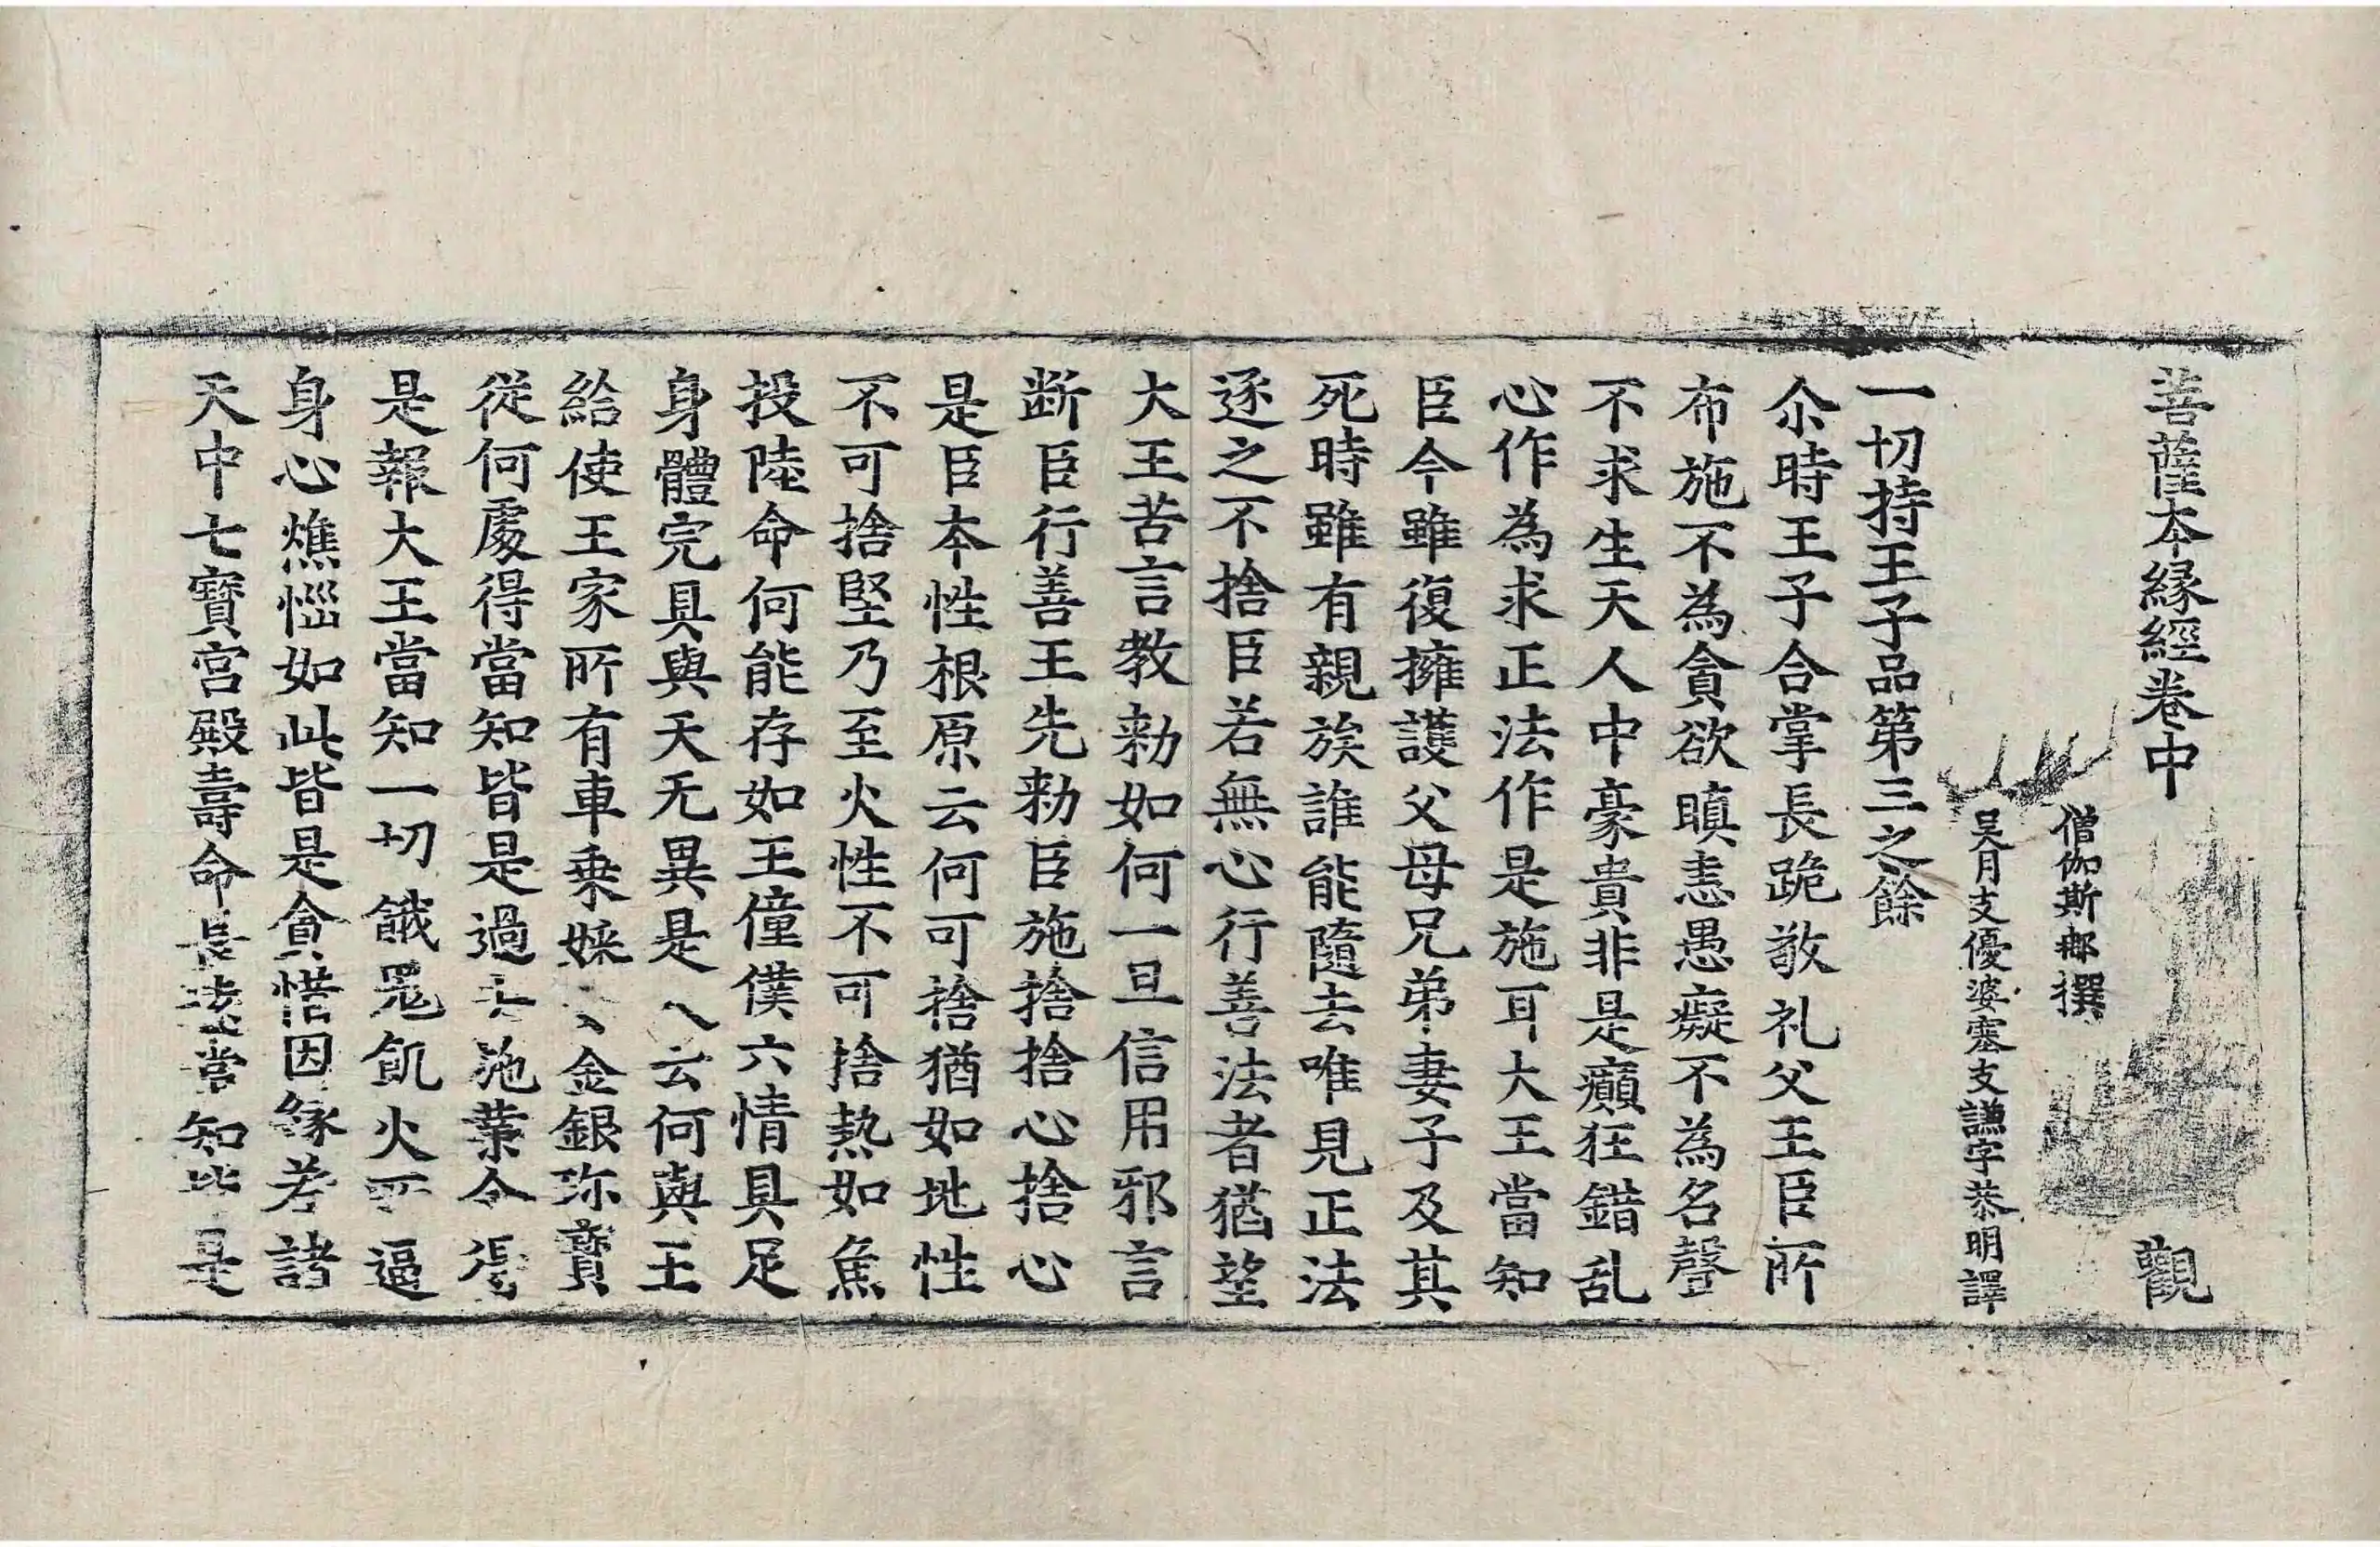 菩薩本緣經卷中 觀
僧伽斯那撰
吳月支優婆塞支謙字恭明譯
一切持王子品第三之餘
尒時王子合掌長跪敬礼父王臣所
布施不為貪欲瞋恚愚癡不為名聲
不求生天人中豪貴非是癲狂錯乱
心作為求正法作是施耳大王當知
臣今雖復擁護父母兄弟妻子及其
死時雖有親族誰能隨去唯見正法
逐之不捨臣若無心行善法者猶望
大王苦言教勑如何一旦信用邪言
断臣行善王先勑臣施捨捨心捨心
是臣本性根原云何可捨猶如地性
不可捨堅乃至火性不可捨熱如魚
投陸命何能存如王僮僕六情具足
身體完具與天无異是人云何與王
給使王家所有車乘婇女金銀珎寳
從何處得當知皆是過去施業今得
是報大王當知一切餓鬼飢火所逼
身心燋惱如此皆是貪惜因緣若諸
天中七寶宫殿壽命長遠當知皆是